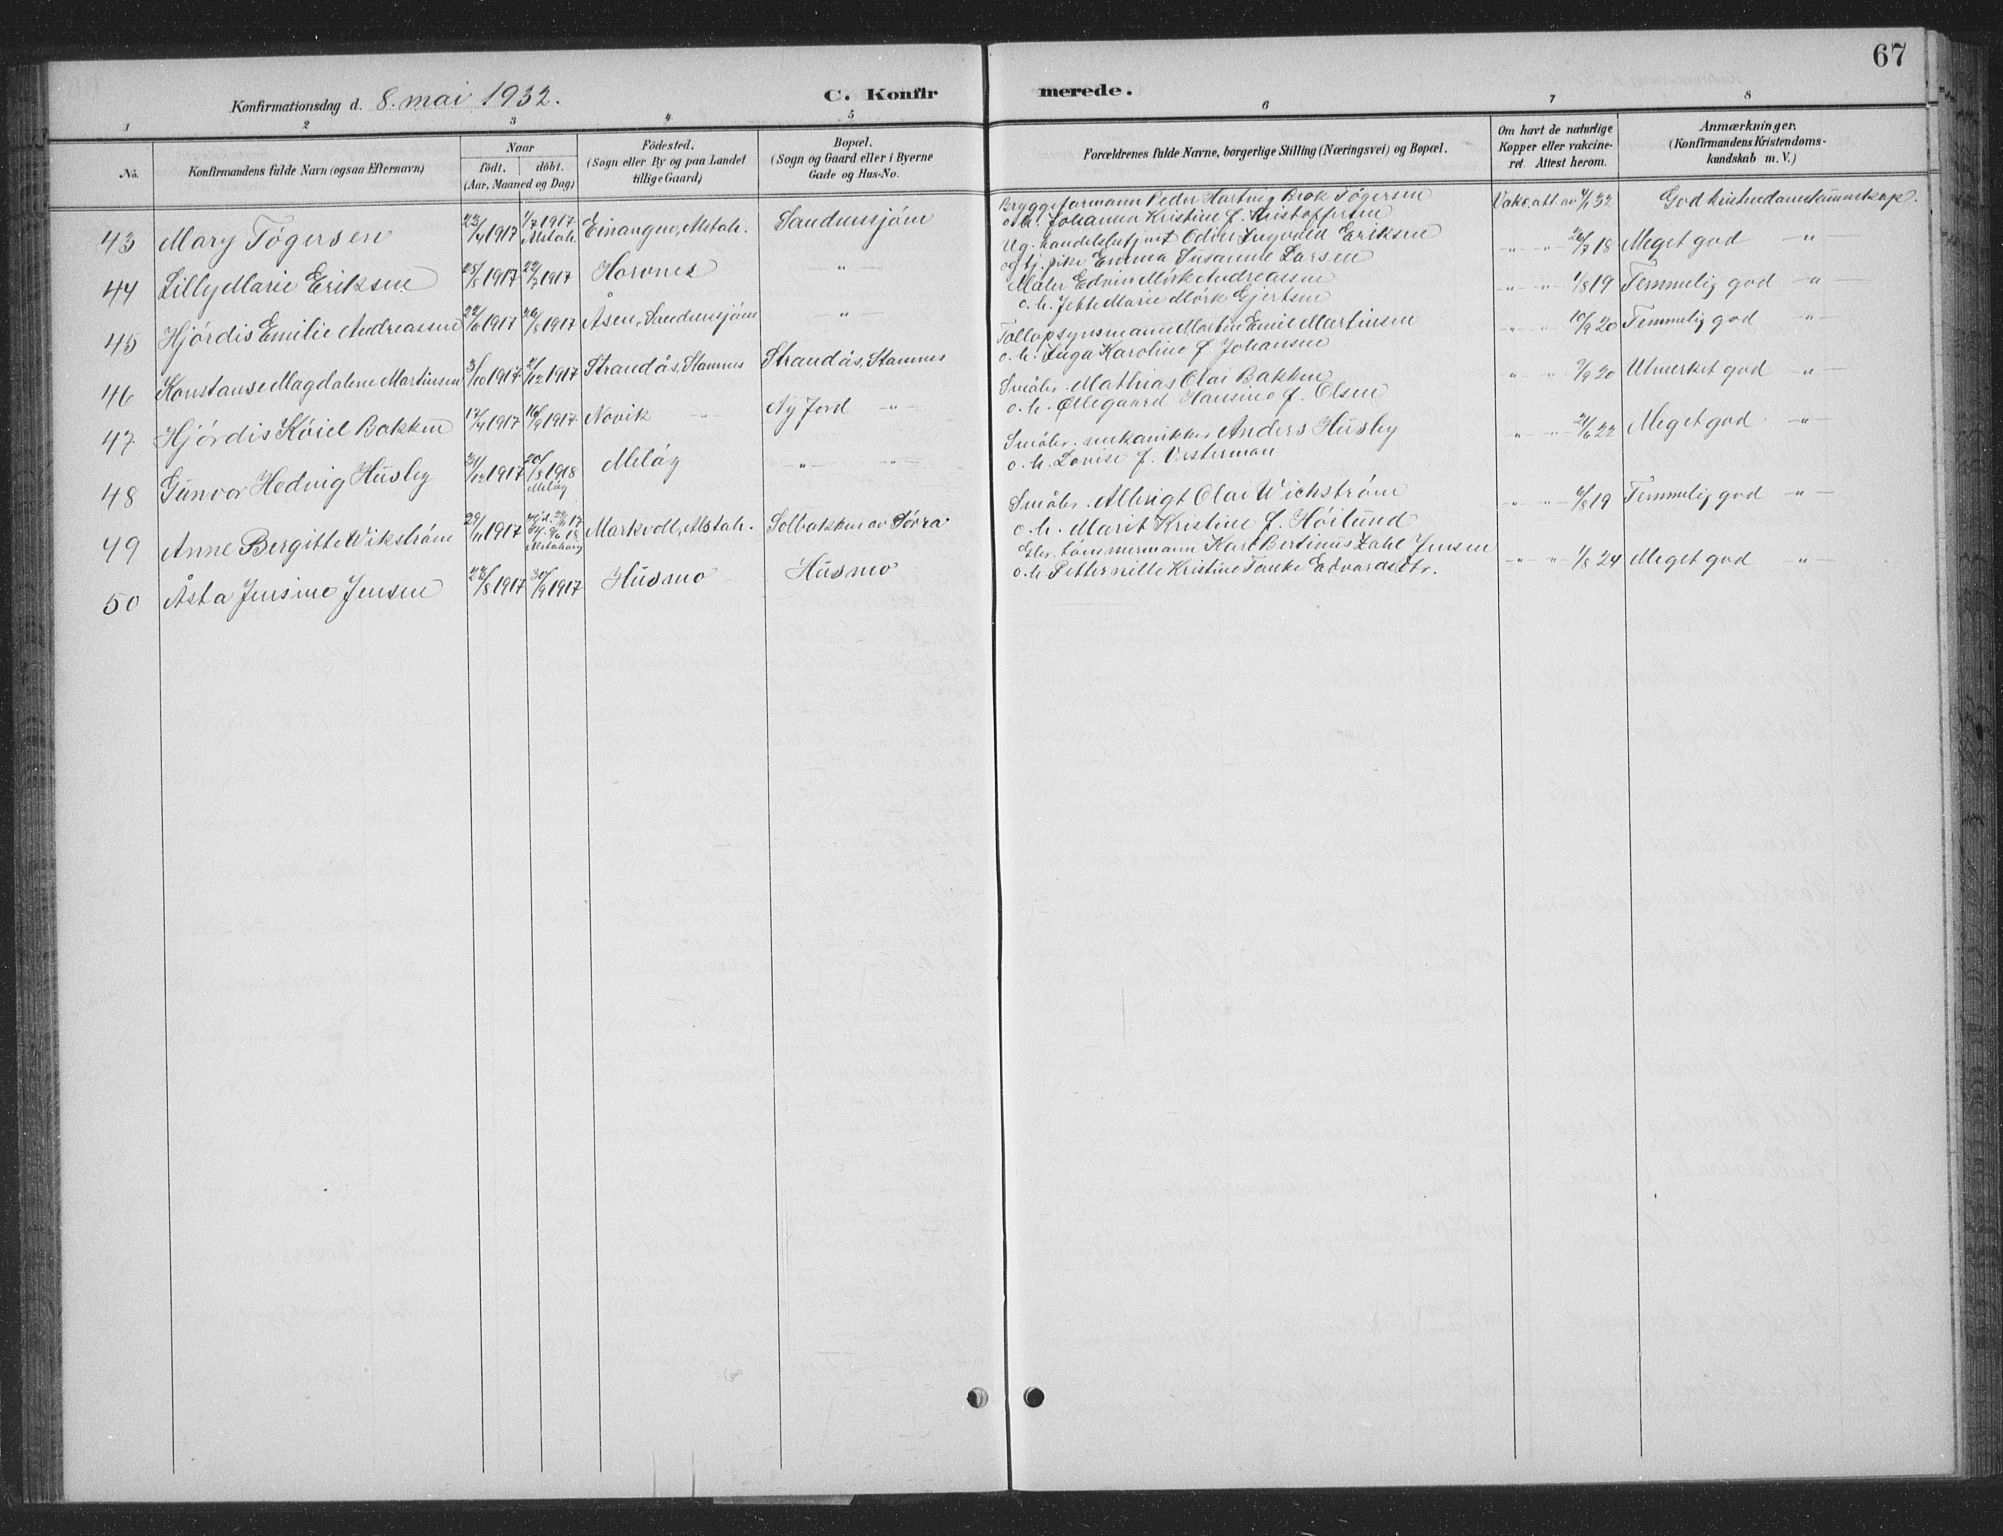 67
Konfirmationsdag d. 8. mai 1932. C. Konfirmerede.
1 2 3 4 5 6 7 8
No. Konfirmandens fulde Navn (ogsaa Efternavn) Naar født. døbt. (Aar, Maaned og Dag) Fødested. (Sogn eller By og paa Landet tillige Gaard) Bopæl. (Sogn og Gaard eller i Byerne Gade og Hus-No. Forældrenes fulde Navne, borgerlige Stilling (Næringsvei) og Bopæl. Om havt de naturlige Kopper eller vakcineret Attest herom. Anmærkninger. (Konfirmandens Kristendomskundskab m. V.)
43 Mary Tøgersen 23/4 1917 1/7 1917 Alstah. Einangen, Alstah. Sandnessjøen Bryggeformann Peder Hartvig Brok Tøgersen
o.h. Johanna Kristine f. Kristoffersen Vakc. att. av 4/1 32 God kristendomskunnskap.
44 Lilly Marie Eriksen 25/5 1917 22/7 1917 Horvnes — " — Ug. handelsbetjent Odin Ingvald Eriksen
og tj. pike Emma Susanne Larsen — " — — " — 26/7 18 Meget god — " —
45 Hjørdis Emilie Andreassen 22/6 1917 26/8 1917 Åsen, Sandnessjøen — " — Maler Edvin Mörk Andreassen
o.h. Jette Marie Mörk Gjertsen " — " — 1/8 19 Temmelig god — " —
46 Konstanse Magdalene Martinsen 3/10 1917 2/12 1917 Strandås, Stamnes Strandås, Stamnes Tollopsynsmann Morten Emil Martinsen
o.h. Inga Karoline f. Johansen " — " — 10/9 20 Temmelig god — " —
47 Hjørdis Köiel Bakken 17/4 1917 16/9 1917 Novik — " — Ny Jord — " — Småbr. Mathias Olai Bakken
o.h. Ollegaard Hansine f. Olsen " " 2/9 20 Utmerket god — " —
48 Gunvor Hedvig Husby 31/12 1917 20/8 1918 Meløy Meløy — " — — " — Småbr. mekanikker Anders Husby
o.h. Lovise f. Vesterman " — " — 21/6 22 Meget god — " —
49 Anne Bergitte Wikström 29/11 1917 Alstahaug Markvoll, Alstah. Solbakken av Sørra Småbr. Albrigt Olai Wichström
o.h. Marit Kristine f. Höilund — " — — " — 6/8 19 Temmelig god — " —
50 Åsta Jensine Jensen 23/8 1917 30/9 1917 Husmo Husmo Gbr. tømmermann Karl Bertinus Zahl Jensen
o.h. Petternille Kristine Tanke Edvardsdtr. — " — — " — 1/8 24 Meget god — " —